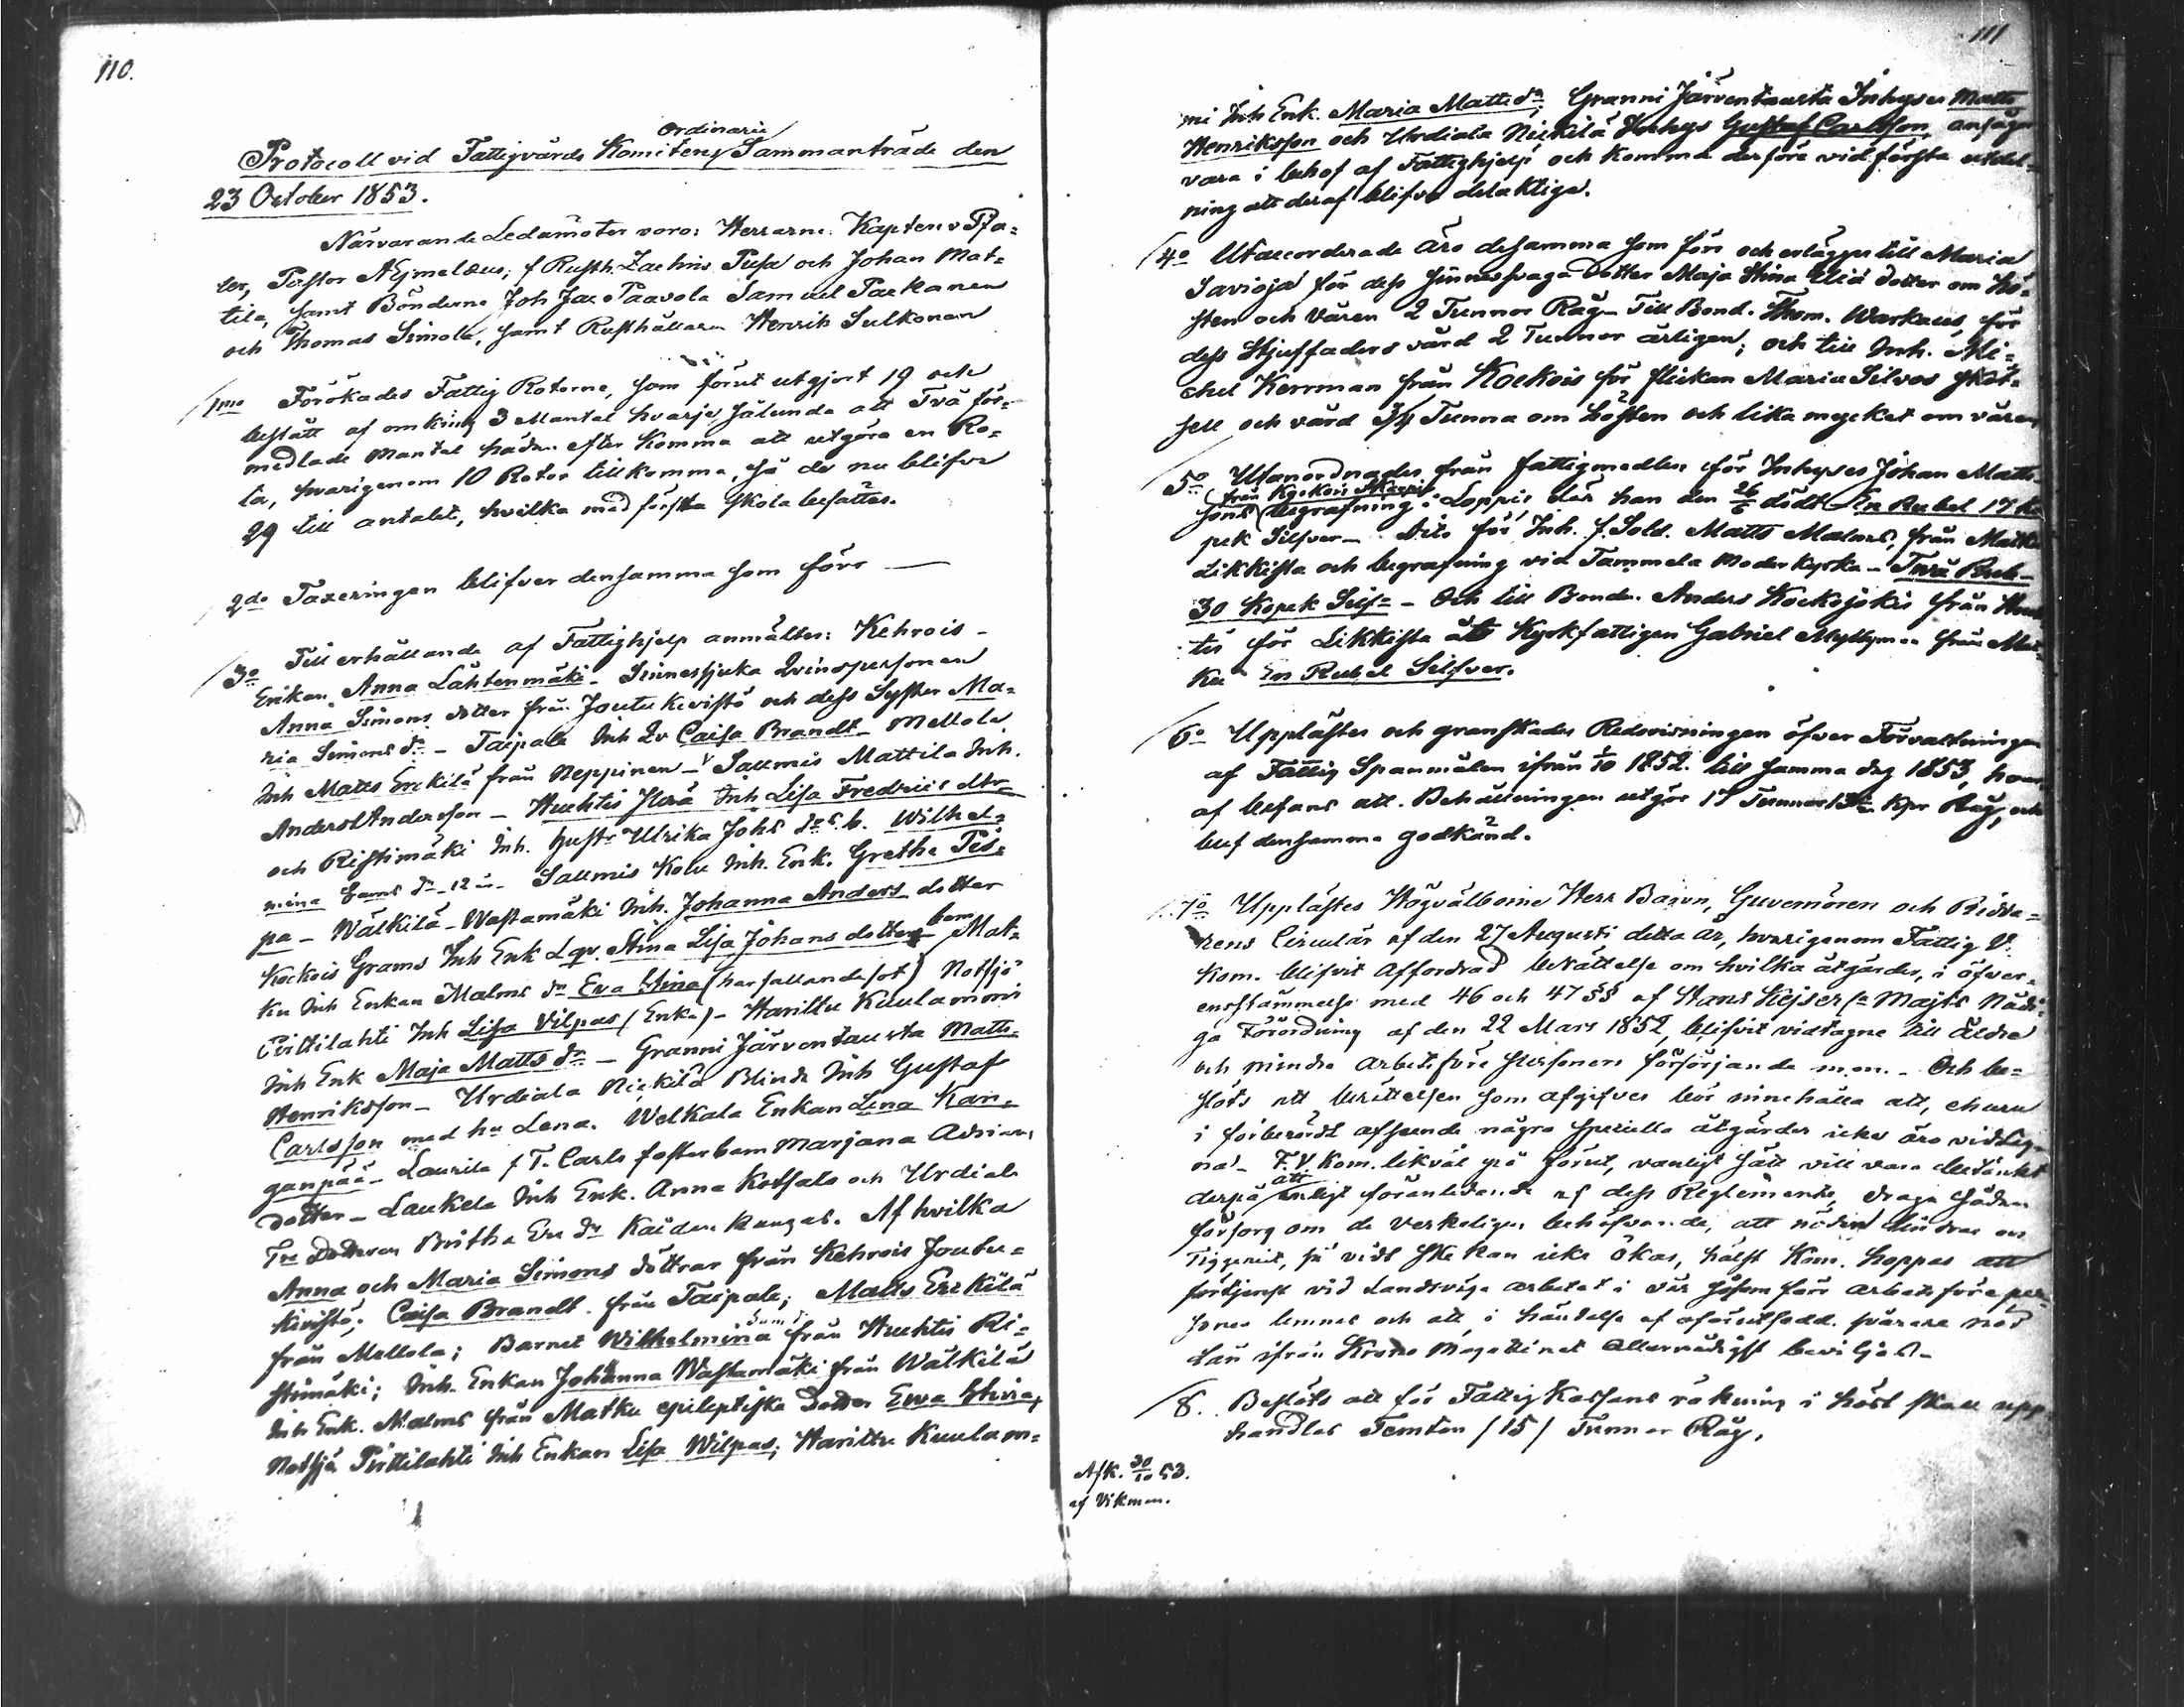 110.
Ordinarie
Protocoll vid Fattigvårds Komitens Sammanträde den
23 October 1853.
Närvarande Ledamöter voro: Herrarne Kapten v Pfa=
ler, Pastor AEjmelæus; f Rusth. Zachris Pusa och Johan Mat=
tila, samt Bönderne Joh Jac Paavola Samuel Parkanen
och Thomas Simola, samt Rusthållaren Henrik Sulkonen
1mo Förökades Fattig Roterne, som förut utgjort 19 och
bestått af omkring 3 Mantal hvarje sålunda att Två för=
medlade Mantal hädan efter komma att utgöra en Ro=
ta, hvarigenom 10 Rotor tillkomma, så de nu blifva
29 till antalet, hvilka med första skola besättas.
2do Taxeringen blifver densamma som förr —
3o Till erhållande af Fattighjelp anmältes: Kehrois -
Enkan Anna Lähtenmäki - Sinnessjuka Qvinspersonen
Anna Simons dotter från Joutu Kivistö och dess Syster Ma=
ria Simons dr - Taipale Inh Qv Caisa Brandt - Mellola
Inh Matts Erckilä från Neppinen - Saumis Mattila Inh.
Anders Andersson - Huhtis Inh Lisa Fredrics dtr
och Ristimäki Inh. Hustr Ulrika Johs dr s. b. Wilhel=
mina dr - 12 å - Saumis Kolu Inh. Enk. Gretha Pis=
pa - Wälkilä - Wastamäki Inh. Johanna Anders dotter
Kockois Grams Inh Enk Stina Lisa Johans dotters barn Mat=
ku Inh Enkan Malms dr Eva Stina (har fallandesot) Notsjö
Pirttilahti Inh Lisa Vilpas (Enka) - Haritu Kuulammi
Inh Enk Maja Matts dr - Granni Järventausta Matts
Henriksson - Urdiala Nickilä Blinde Inh Gustaf
Carlsson med hu Lena. Welkala Enkan Lena Kan=
ganpää - Laurila f T. Carls fosterbarn Marjana Adrians
dotter - Laukela Inh Enk. Anna Kotsalo och Urdiala
Britha Eva dr Kaiden Kangas. Af hvilka
Anna och Maria Simons döttrar från Kehrois Joutu=
kivistö; Caisa Brandt från Taipale; Matts Erckilä
från Mellola; Barnet Wilhelmina från Huhtis Ri=
stimäki; Inh. Enkan Johanna Wastamäki från Wälkilä
Inh Enk. Malms från Matku epileptiska Dotter Ewa Stina;
Notsjö Pirttilahti Inh Enkan Lisa Wilpas; Harittu Kuulam=
111
mi Inh Enk. Maria Matts dr; Granni Järventausta Inhyses Matts
Henriksson och Urdiala Nickilä Inhys Gustaf Carlsson, ansågs
vara i behof af Fattighjelp och komma derföre vid första utdel=
ning att deraf blifva delaktige.
4o Utaccorderade äro desamma som förr och erlägges till Maria
Savioja för dess sinnessvaga Dotter Maja Stina Eliæ dotter om Hö=
sten och våren 2 Tunnor Råg - Till Bond. Thom. Warkaus, för
dess Stjuffaders vård 2 Tunnor årligen; och till Inh. Mi=
chel Herrman från Kockois för flickan Maria Silvos sköt=
sell och vård 3/4 Tunna om Hösten och lika mycket om våren
5o Utanordnades från fattigmedlen för Inhyses Johan Matts
från Kockois
sons begrafning i Loppis, der han den 26 dödt En Rubel 17 Ko
pek Silfver - Dito för Inh. f. Sold. Matts Malms, från Matku
Likkista och begrafning vid Tammela Moderkyrka - Två Rub-
30 Kopek Silfr - Och till Bonden Anders Kockojokis från
tis för Likkista åt Kyrkfattigen Gabriel Myllyn från Mat=
ku En Rubel Silfver.
6o Upplästes och granskades Redovisningen öfver Förvaltningen
af Fattig Spanmålen ifrån 1/10 1852 till samma dag 1853, hvar
af befans att Behållningen utgör 17 Tunnor Kpr Råg, och
blef densamma godkänd.
7o Upplästes Högvälborne Herr Baron, Guvernören och Ridda=
rens Circulär af den 27 Augusti detta år, hvarigenom Fattig V.
Kom. blifvit affordrad berättelse om hvilka åtgärder, i öfver
ensstämmelse med 46 och 47 §§ af Hans Kejserl. Majts Nådi
ga Förordning af den 22 Mars 1852, blifvit vidtagne till äldre
och mindre arbetsföre personers försörjande m.m. - Och be=
slöts att berättelsen som afgifves bör innehålla att, ehuru
i förberörde afseende några speciella åtgärder icke äro vidtag
na - F.V. Kom. likväl på förut, vanligt sätt vill vara betänkt
derpå att enligt föranledande af dess Reglemente, draga sådan
försorg om de verkeligen behöfvande, att nöden lindras och
Tiggeriet, så vidt ske kan icke ökas, hälst Kom. hoppas att
förtjenst vid Landsvägs arbetet i vår såsom förr arbetsföre per
soner lemnas och att i händelse af oförutsedd svårare nöd
Lån ifrån Krono Magazinet allernådigst beviljas -
8. Beslöts att för Fattig Kassans räkning i höst skall upp
handlas Femton /15/ Tunnor Råg.
Afk. 30/10 53.
af Vikman.